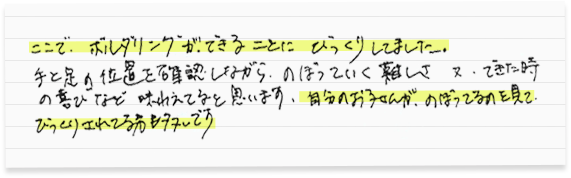 ここで、ボルダリングができることにびっくりしました。
手と足の位置を確認しながら、のぼっていく難しさ又、できた時
の喜びなど味わえてると思います、自分のお子さんが、のぼってるのを見て、
びっくりされてる方も多いです